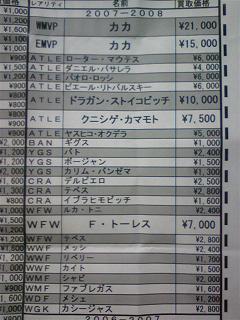 レアリティ 名前 買取価格
2007-2008
WMVP カカ ¥21,000
EMVP カカ ¥15,000
ATLE ローター・マテウス ¥6,000
ATLE ダニエル・パサレラ ¥4,000
ATLE パオロ・ロッシ ¥6,000
ATLE ピエール・リトバルスキー ¥6,000
ATLE ドラガン・ストイコビッチ ¥10,000
ATLE クニシゲ・カマモト ¥7,500
ATLE ヤスヒコ・オクデラ ¥5,000
BAN ギグス ¥1,000
YGS パト ¥2,400
YGS ボージャン ¥1,500
YGS カリム・バンゼマ ¥1,300
CRA デルピエロ ¥2,500
CRA テベス ¥2,800
CRA イブラヒモビッチ ¥1,600
WFW ルカ・トニ ¥2,400
WFW F・トーレス ¥7,000
WFW テベス ¥2,800
WWF メッシ ¥2,400
WWF リベリー ¥1,700
WWF カイト ¥1,500
WMF シャビ ¥2,000
WMF ファブレガス ¥1,600
WDF メシェ ¥1,200
WGK カシージャス ¥1,600
2006-2007